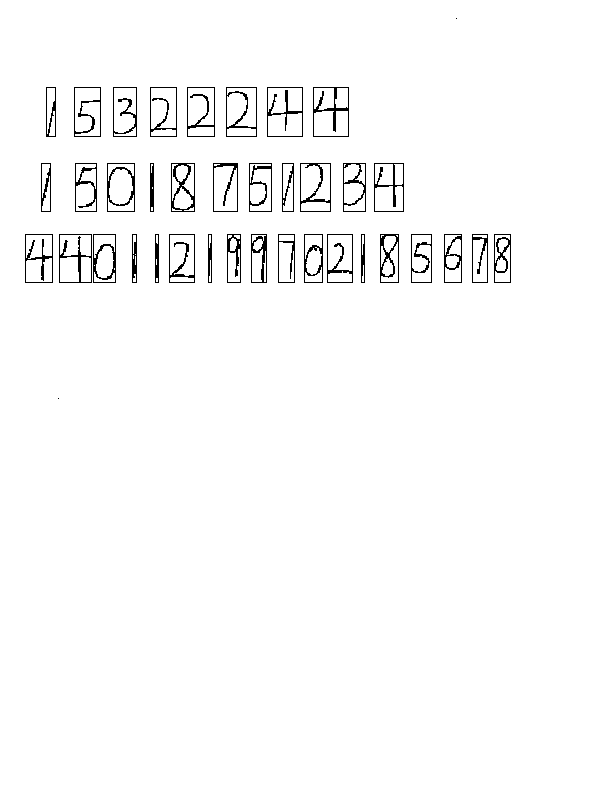 15322244
15018751234
440112199702185678